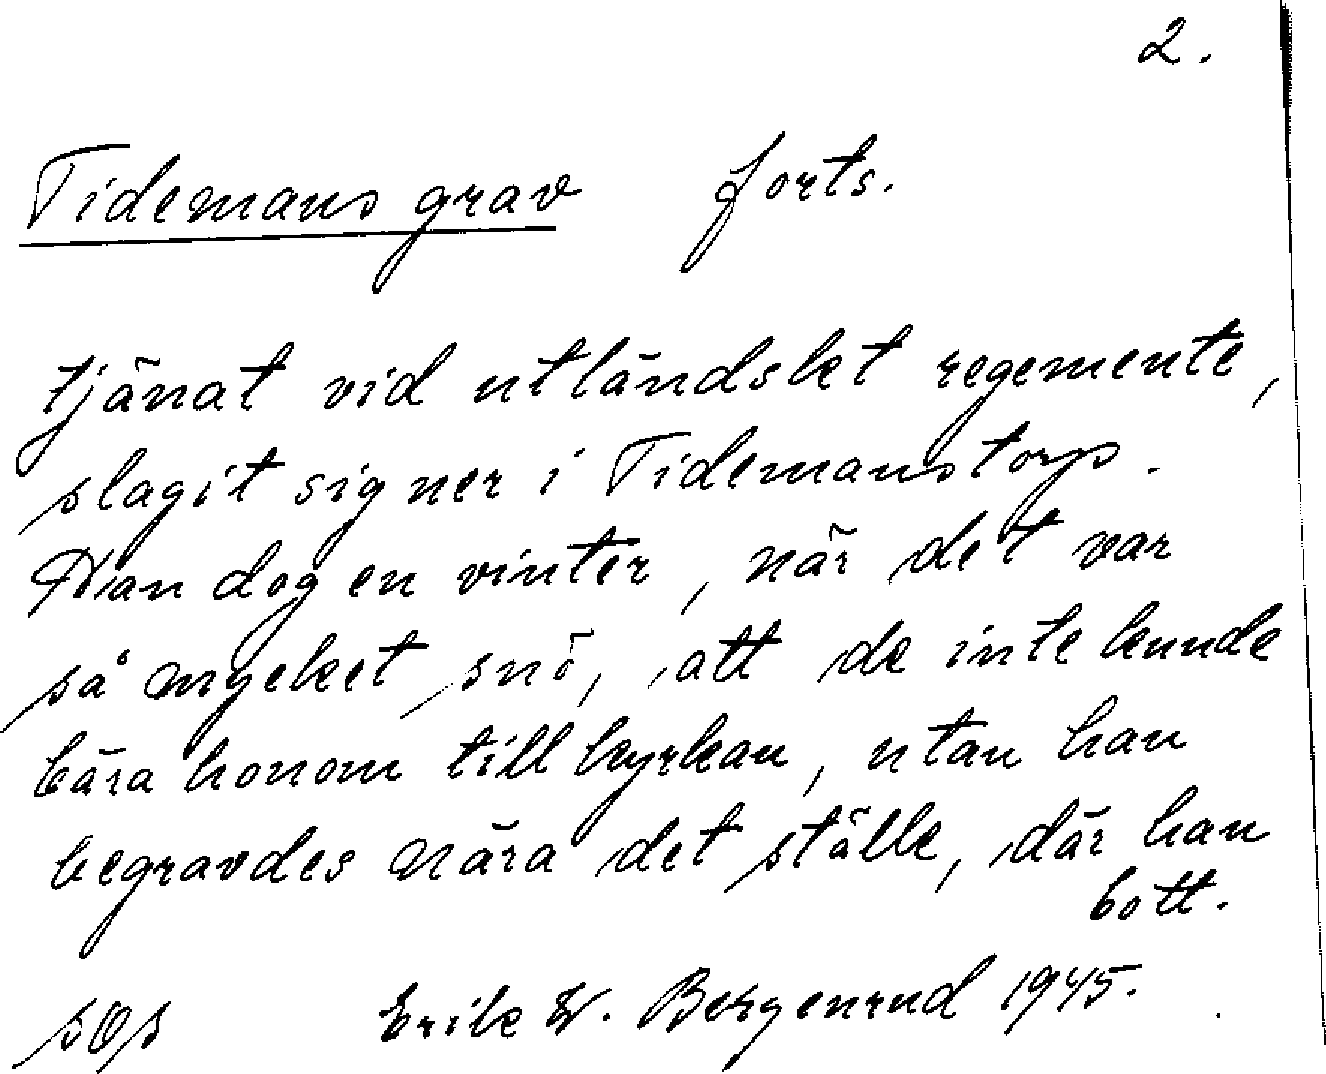 2.
Tidemans grav forts.
tjänat vid utländskt regemente,
slagit sig ner i Tidemanstorp.
Han dog en vinter, när det var
så mycket snö, att de inte kunde
bära honom till kyrkan, utan han
begravdes nära det ställe, där han
bott.
Erik W. Bergenrud 1945.